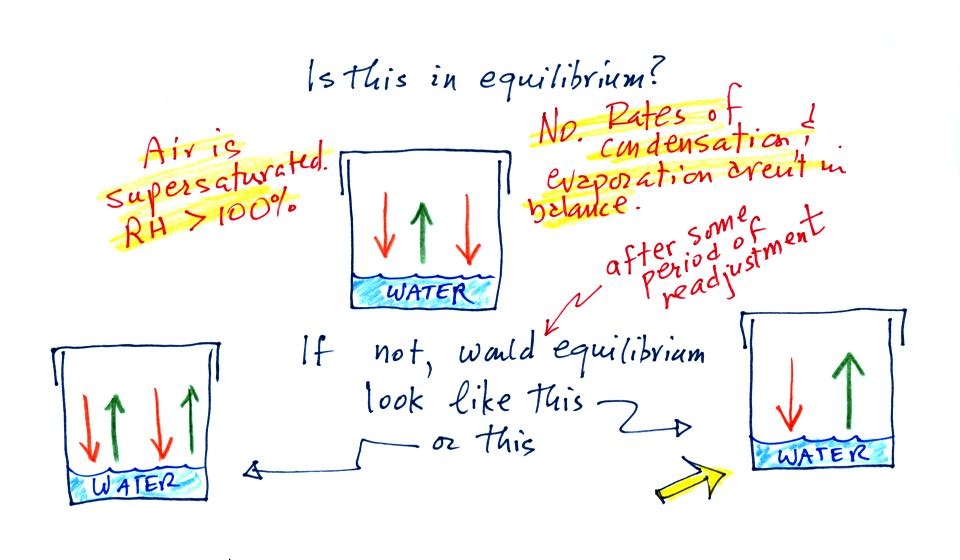 Is this in equilibrium?
Air is
supersaturated.
RH > 100%
No. Rates of
condensation &
evaporation aren't in
balance.
WATER
after some
period of
readjustment
If not, would equilibrium
look like this
or this
WATER
WATER